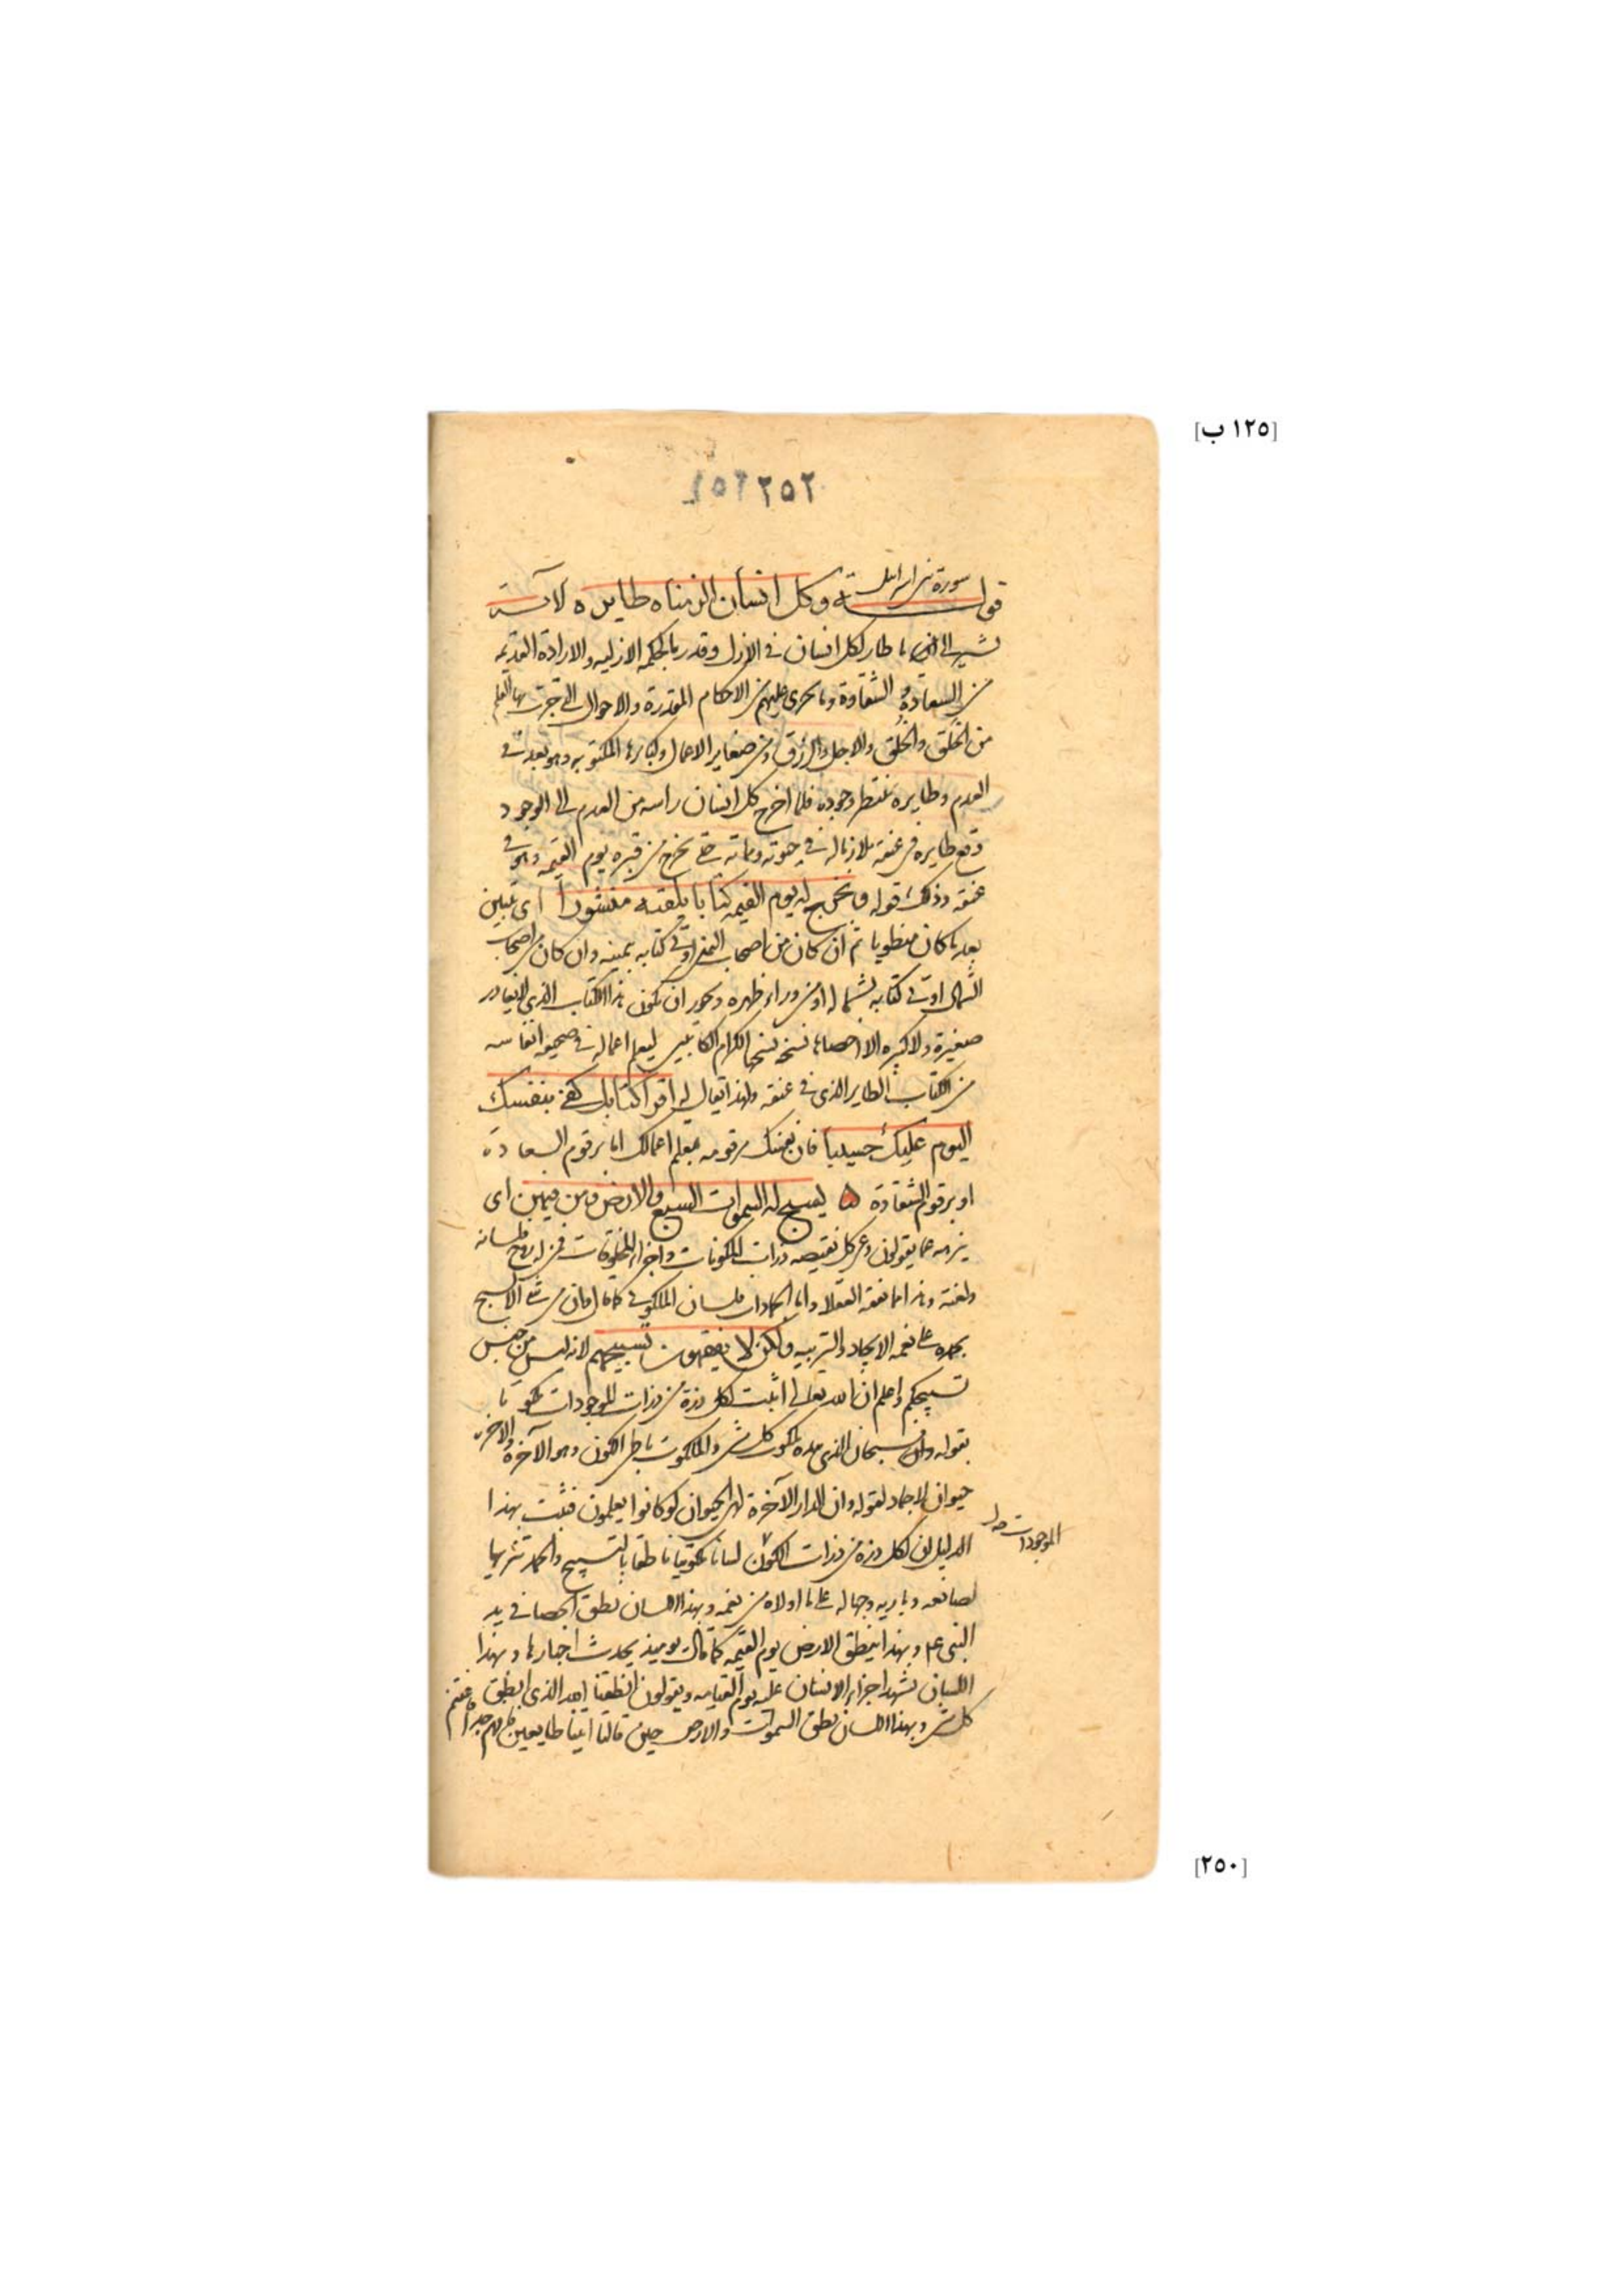 [١٢٥ ب]
٢٥٢
سورة بني اسرائيل
قوله وكل انسان الزمناه طايره الآية
يشير الى ان ما طار لكل انسان في الازل وقدر بالحكمة الازليه والارادة القديمه
من السعادة والشقاوة وما يجرى عليهم من الاحكام المقدرة والاحوال التي جرت بها القلم
من الخلق والخلق والاجل والرزق ومن صغاير الاعمال وكبايرها المكتوبه وهو بعد في
العدم وطايره ينتظر وجوده فلما اخرج كل انسان راسه من العدم الى الوجود
وقع طايره في عنقه ملازما له في حيوته ومماته حتى يخرج من قبره يوم القيمه وهو في
عنقه وذلك قوله ونخرج له يوم القيمه كتابا يلقيه منشورا اى تبين
بعد ما كان منطويا ثم ان كان من اصحاب اليمين اوتى كتابه بيمينه وان كان من اصحاب
الشمال اوتى كتابه بشماله او من وراء ظهره ويجوز ان يكون هذا الكتاب الذي لا يغادر
صغيرة ولا كبيره الا احصاها نسخه نسخها الكرام الكاتبين بقلم اعماله في صحيفه انفاسه
من الكتاب الطاير الذى في عنقه ولهذا يقال له اقرا كتابك كفى بنفسك
اليوم عليك حسيبا فان نفسك مرقومه بقلم اعمالك اما برقوم السعادة
او برقوم الشقاوة يسبح له السموات السبع والارض ومن فيهن اى
ينزهه عما يقولون وعن كل نقيصه ذرات المكونات واجزاء المخلوقات فمن له روح فلسانه
ولغته وهذا مما يفقه العقلا واما الجمادات فلسان الملكوتى كما قال وان من شئ الا يسبح
بحمده على نعمه الايجاد والتربيه ولكن لا تفقهون تسبيحهم لانه ليس من جنس
تسبيحكم واعلم ان الله تعالى اثبت لكل ذرة من ذرات الموجودات ملكوتا
بقوله فسبحان الذى بيده ملكوت كل شئ والملكوت باطن الكون وهو الآخرة والاخرة
حيوان لا جماد لقوله وان الدار الآخرة لهى الحيوان لو كانوا يعلمون فثبت بهذا
الدليل ان لكل ذرة من ذرات الكون لسانا ملكوتيا ناطقا بالتسبيح والحمد تنزيها
الموجودات
لصانعه وباريه وحمدا له على ما اولاه من نعمه وبهذا اللسان نطق الحصا في يد
النبي عم وبهذا ينطق الارض يوم القيمه كما قال يوميذ تحدث اخبارها وبهذا
اللسان تشهد اجزاء الانسان عليه يوم القيامه ويقولون انطقنا الله الذى انطق
كل شئ وبهذا اللسان نطق السموات والارض حين قالتا اتينا طايعين فافهم جدا واغتنم
[٢٥٠]